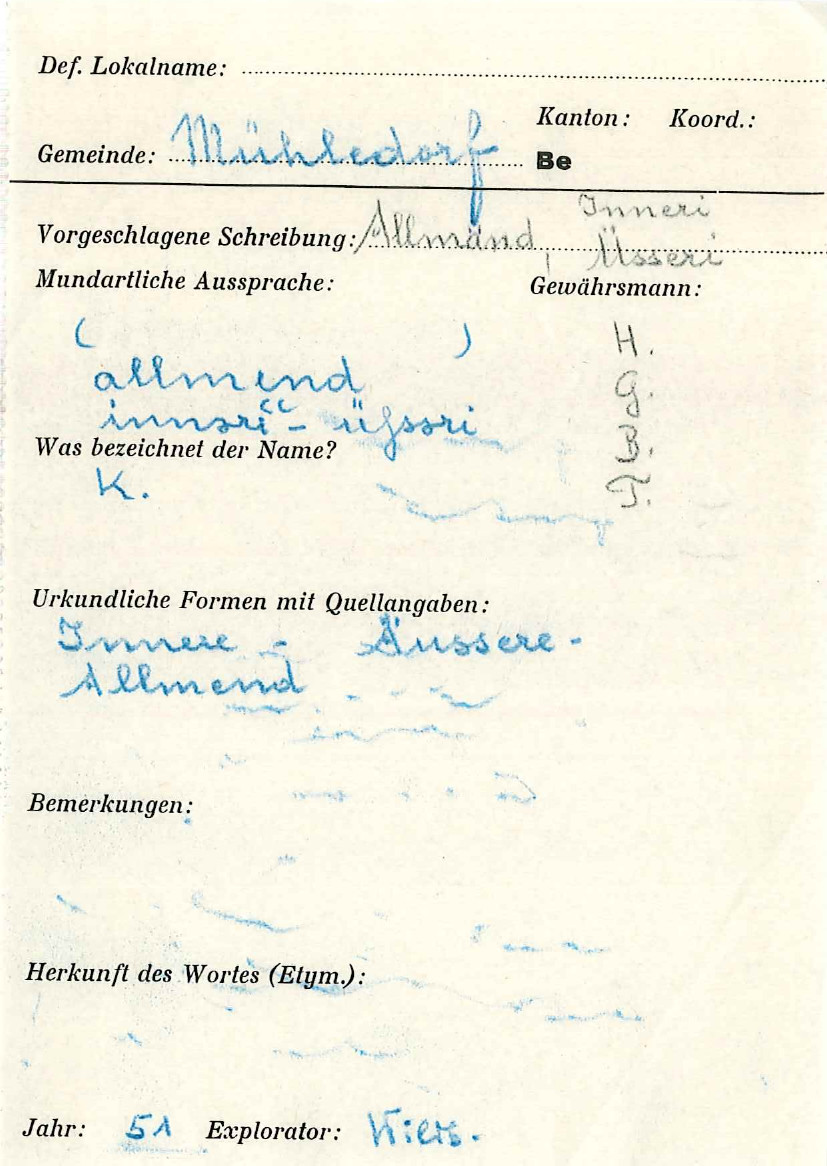 Def. Lokalname:
Kanton: Koord.:
Gemeinde: Mühledorf Be
Inneri
Vorgeschlagene Schreibung: Allmänd, Üsseri
Mundartliche Aussprache: Gewährsmann:
( ) H.
allmend G.
innəri - üssəri B.
Was bezeichnet der Name?
K. T.
Urkundliche Formen mit Quellangaben:
Innere - Äussere -
Allmend
Bemerkungen:
Herkunft des Wortes (Etym.):
Jahr: 51 Explorator: